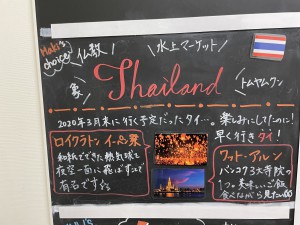 Maki's choice!
仏教
水上マーケット
象
Thailand
トムヤムクン
2020年3月末に行く予定だったタイ…。楽しみにしてたのに!
早く行きタイ!
ロイクラトン イーペン祭
和紙でできた熱気球を
夜空一面に飛ばすことで
有名です
ワット・アルン
バンコク3大寺院の
1つ。美味しいご飯
食べながら見たい